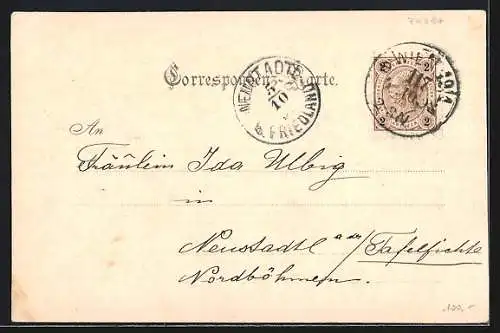 Correspondenz-Karte.
NEUSTADTL
b. FRIEDLAND
5
10
WIEN
2 2
2 2
An
Fräulein Ida Ulbig
in
Neustadtl a. der / Tafelfichte
Nordböhmen.
100.-